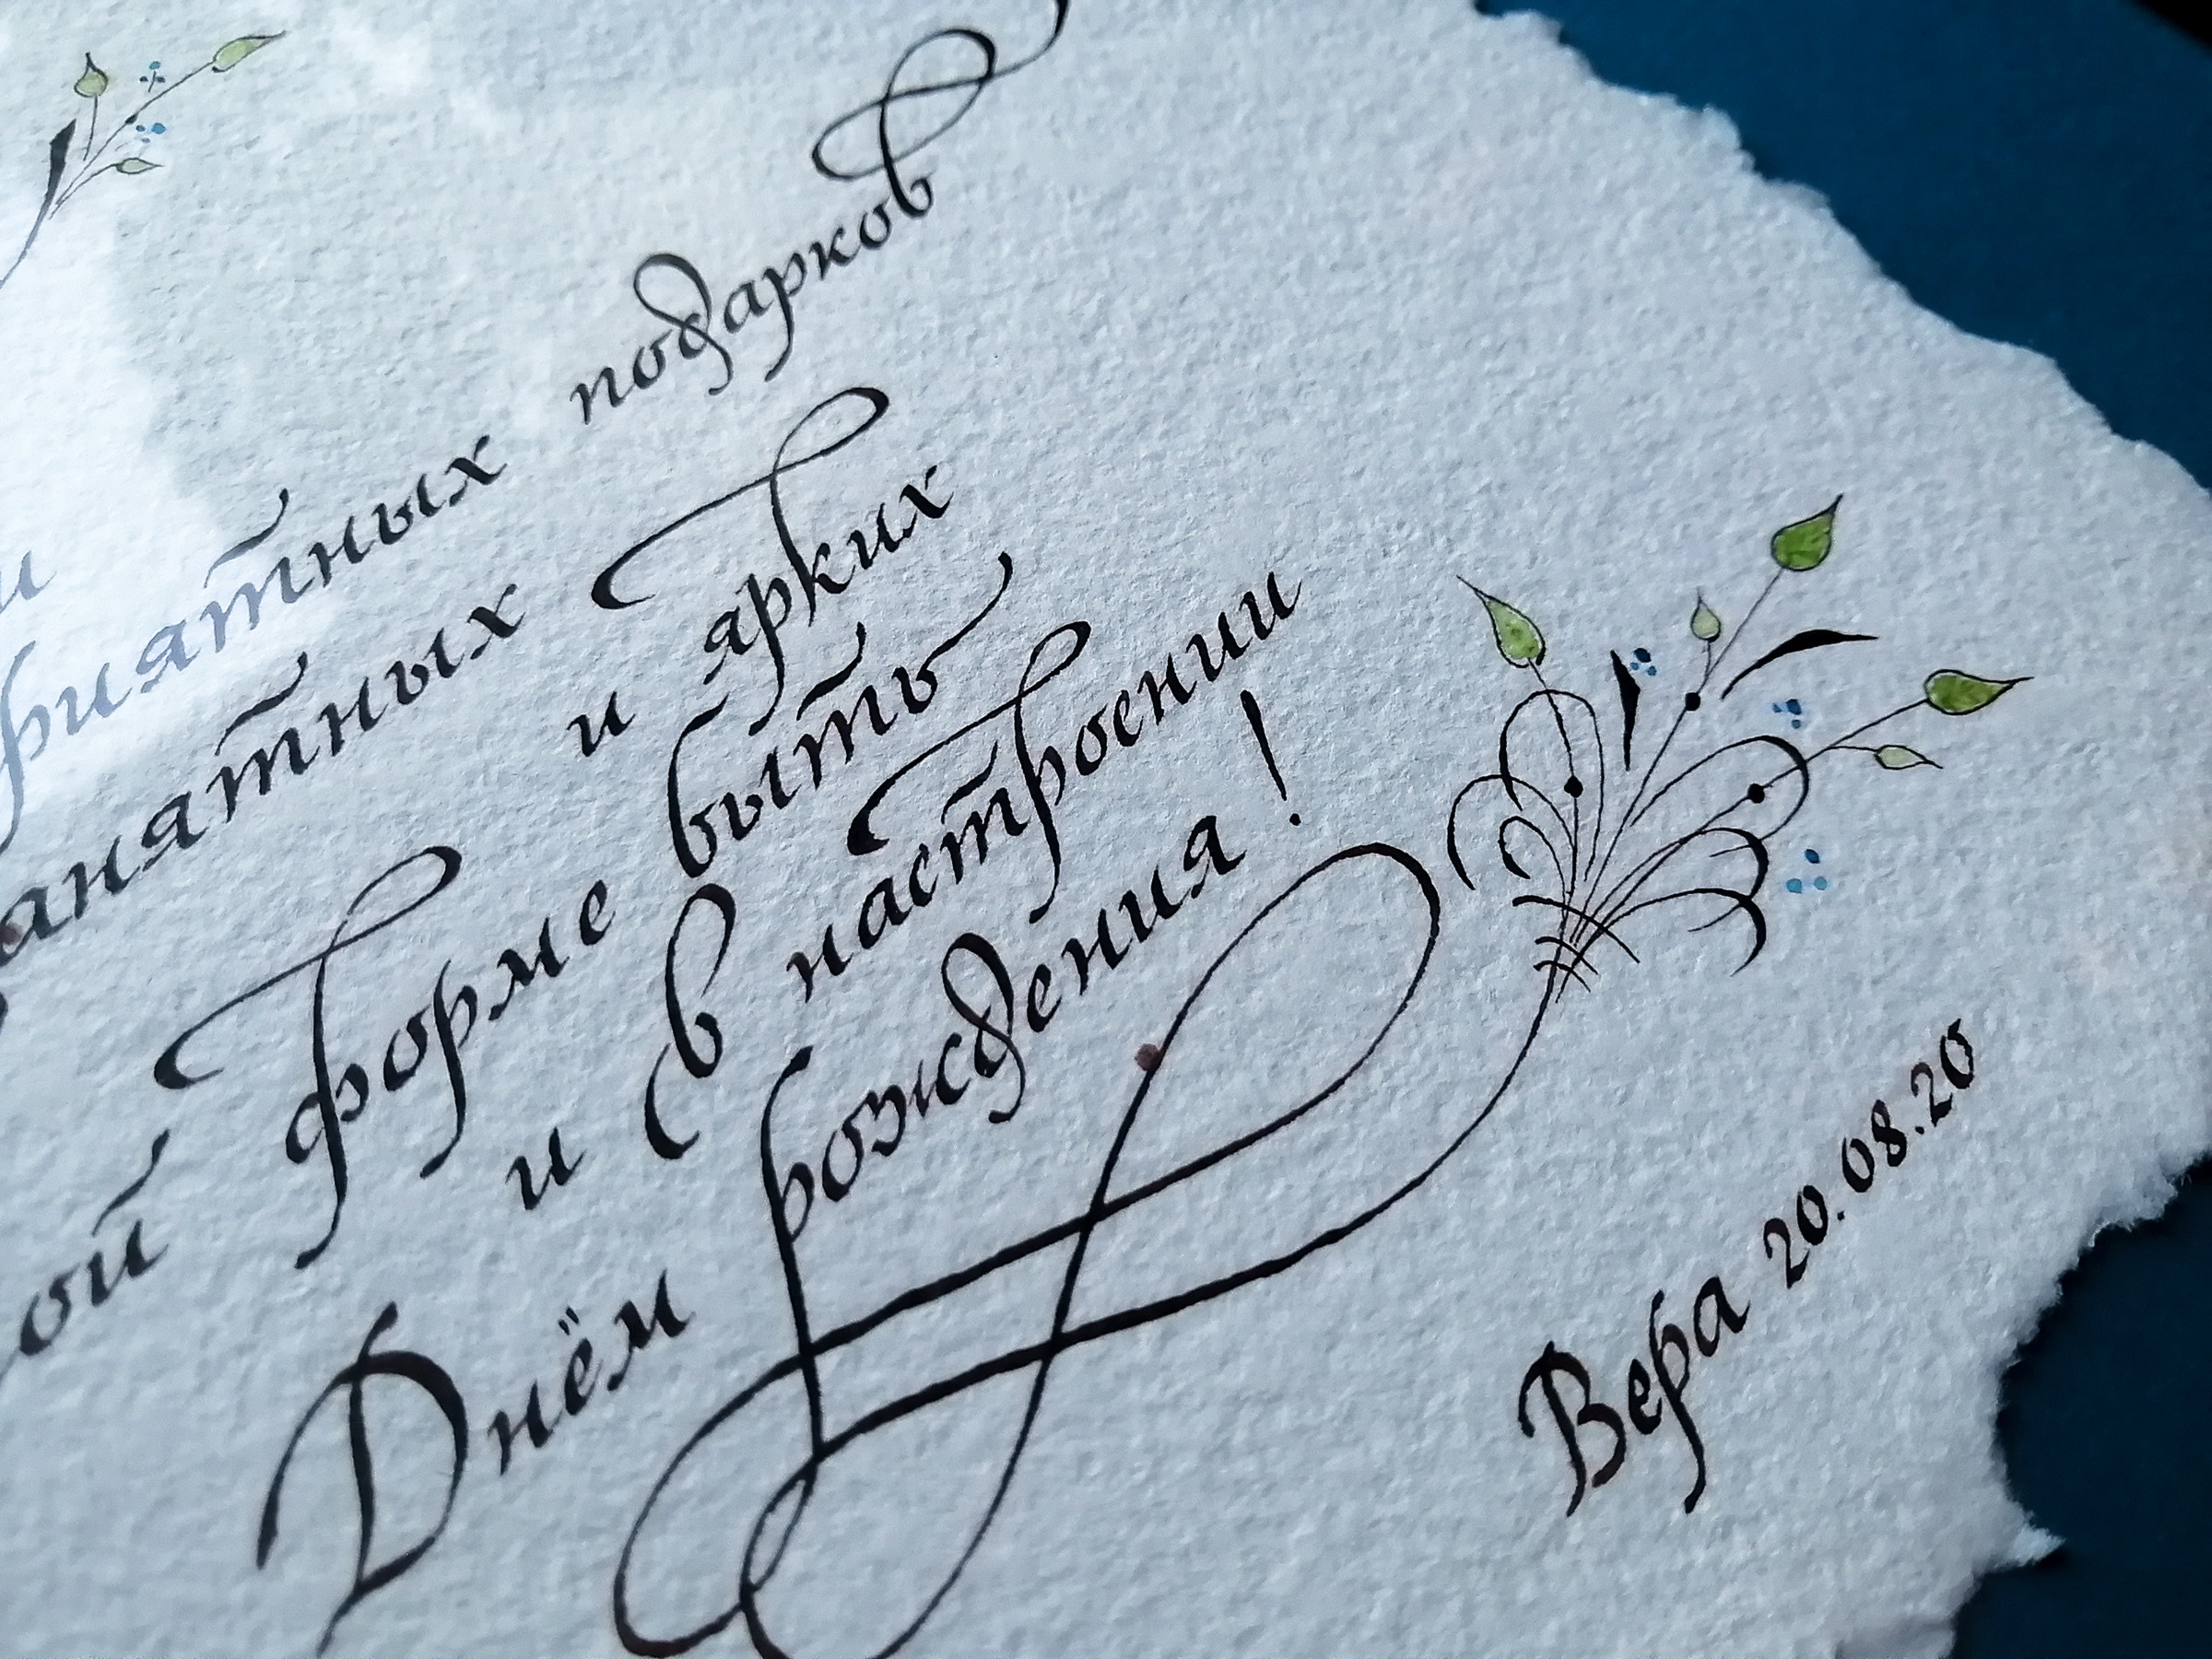 и
риятных подарков
анятных
и ярких
ой форме быть
и в настроении
Днём рождения!
Вера 20.08.20